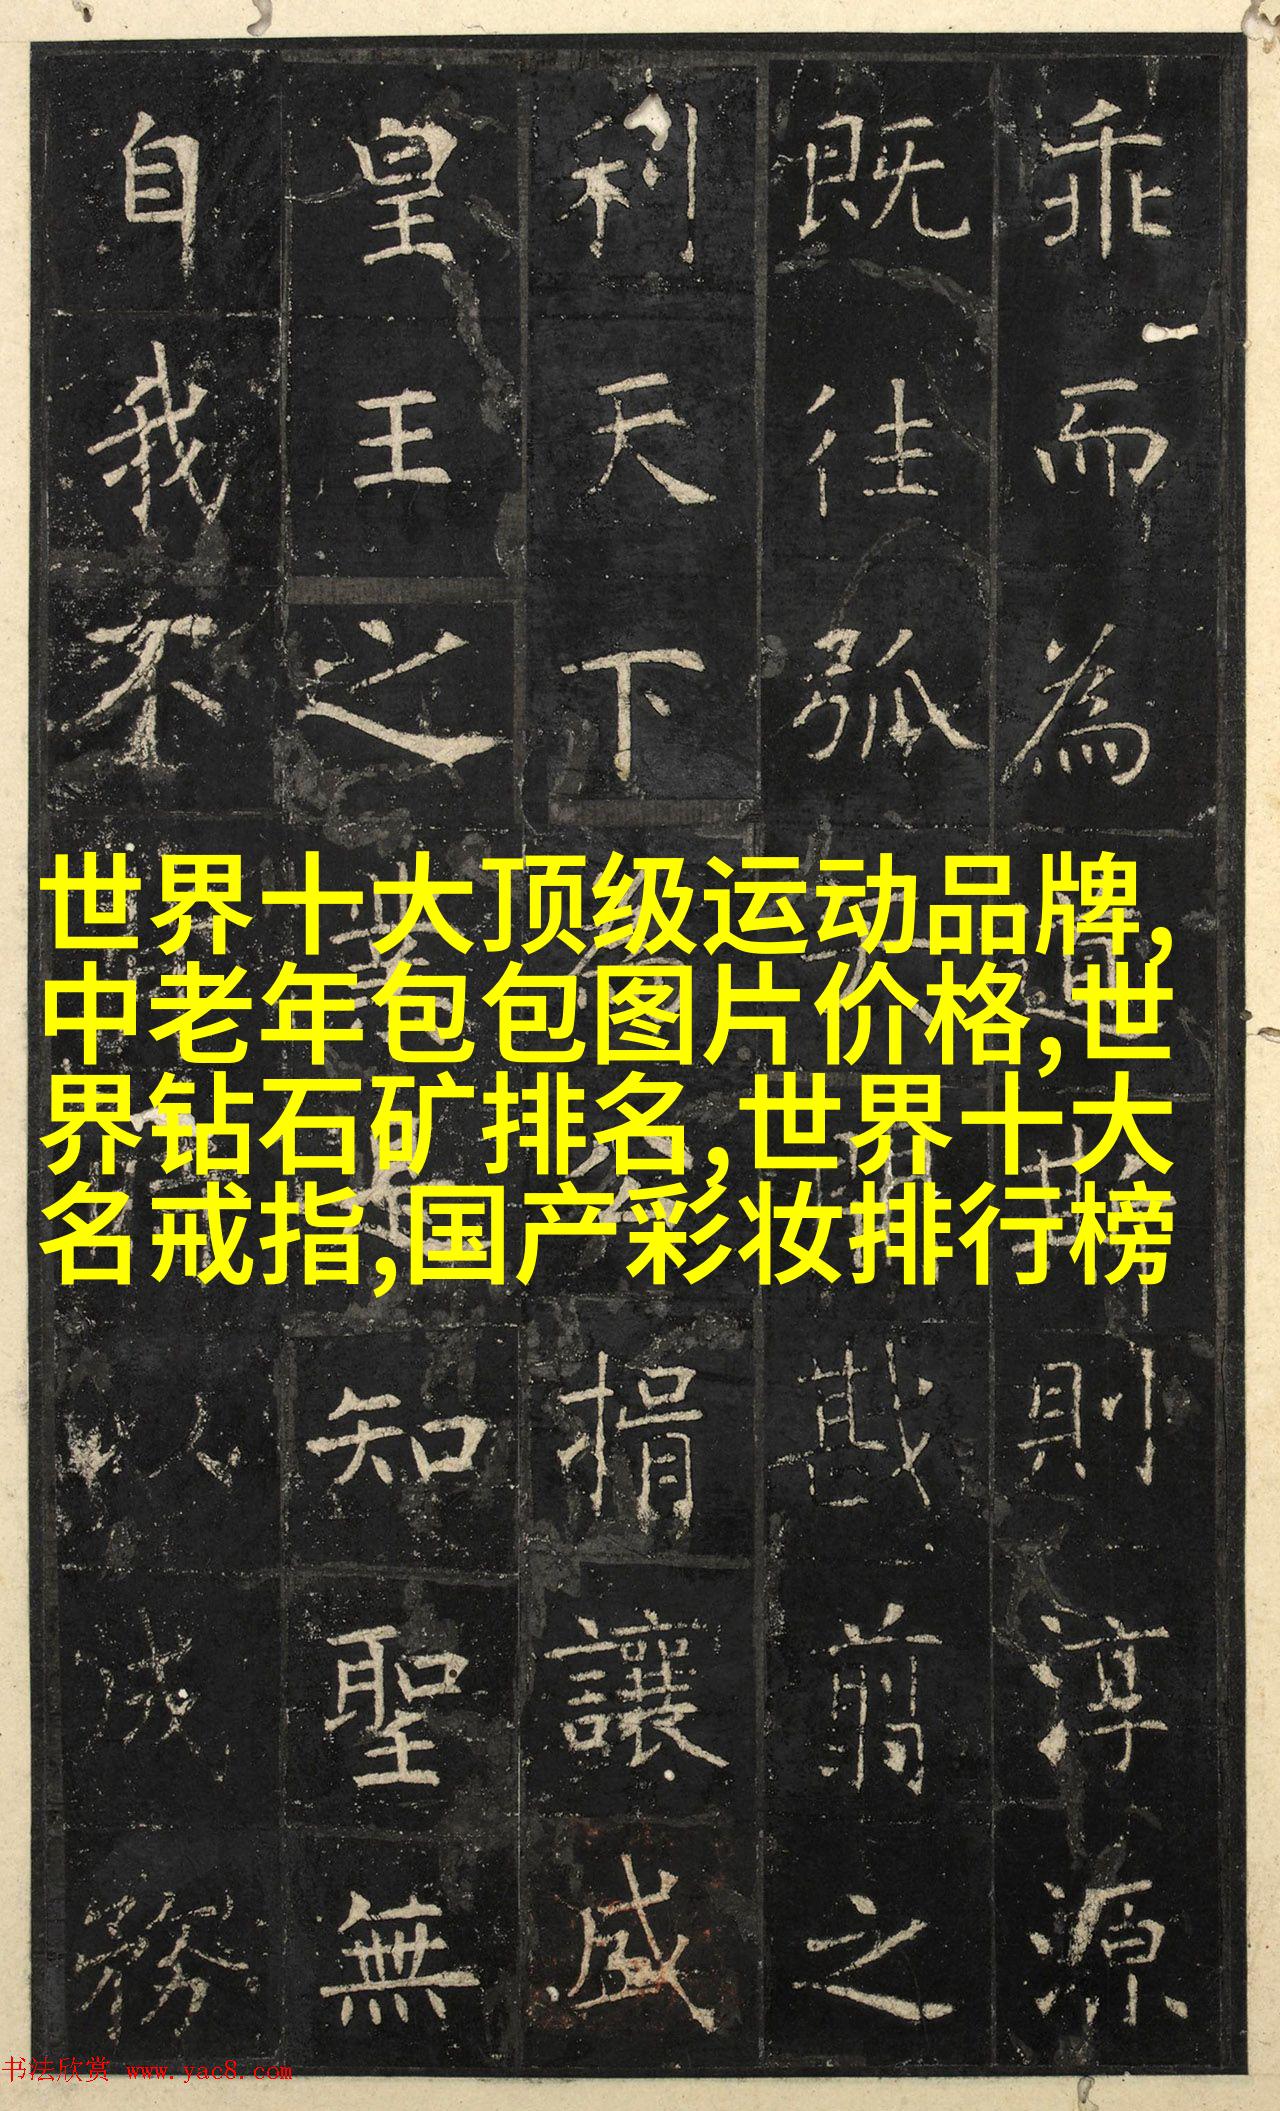 乖而為則淳源
既往弧戡翦之
利天下捐讓盛
皇王之業是知聖無
自我不以成務
世界十大顶级运动品牌,
中老年包包图片价格,世
界钻石矿排名,世界十大
名戒指,国产彩妆排行榜
书法欣赏 www.yac8.com